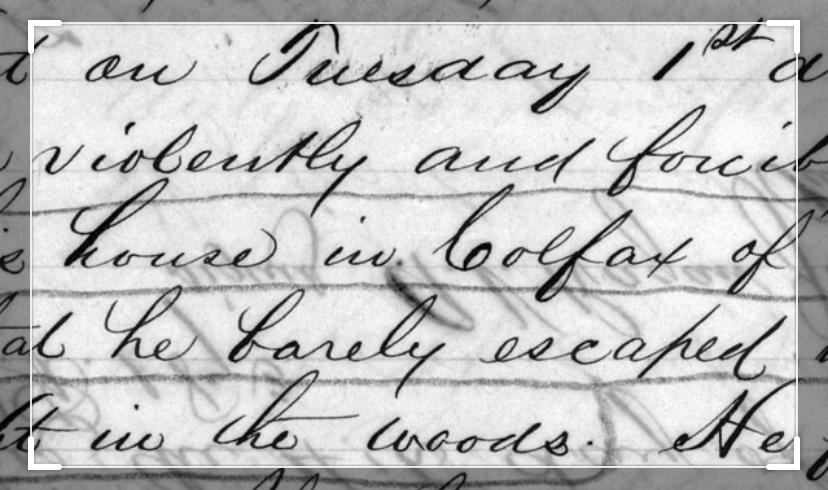 on Tuesday 1st
violently and forcib
house in Colfax of
he barely escaped
in the woods. He